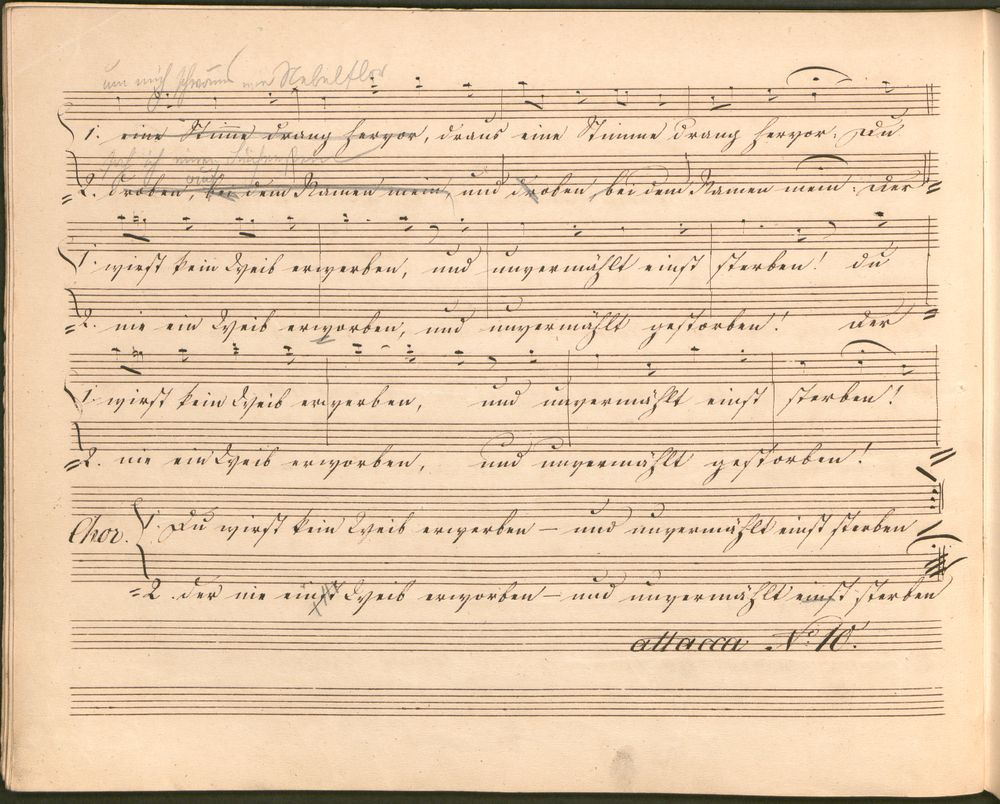 um mich schwamm ein Nebelflor
1. eine Stimme drang hervor, draus eine Stimme drang hervor: Du
sah ich einen
auf
2. droben, bei dem Namen mein, und droben bei dem Namen mein: der
1. wirst kein Weib erwerben, und unvermählt einst sterben! du
2. nie ein Weib erworben, und unvermählt gestorben! der
1. wirst kein Weib erwerben, und unvermählt einst sterben!
2. nie ein Weib erworben, und unvermählt gestorben!
Chor. 1. Du wirst kein Weib erwerben – und unvermählt einst sterben
2. der nie einst Weib erworben – und unvermählt einst sterben
attacca No 10.